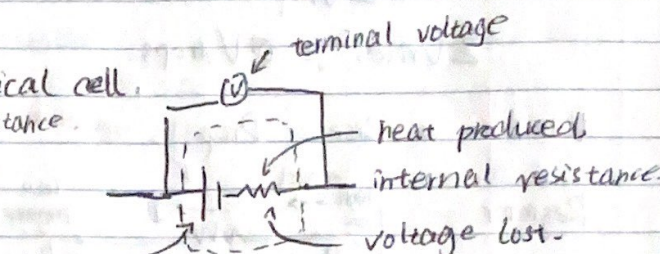 terminal voltage
ical cell.
V
tance.
heat produced
internal resistance.
voltage lost.